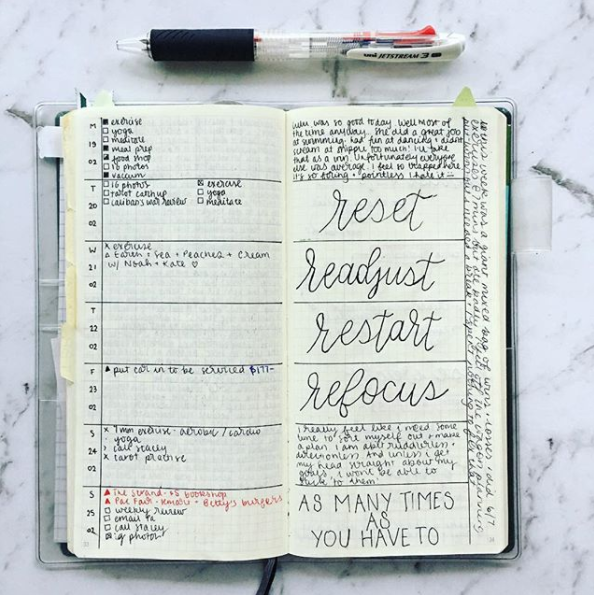 uni JETSTREAM 3
M
19
02
exercise
yoga
meditate
meal prep
food shop
16 photos
vacuum
T
20
02
16 photos
tarot catchup
caliban's war review
exercise
yoga
meditate
W
21
02
exercise
Earth = Sea + Peaches + Cream
w/ Noah + Kate
T
22
02
F
23
02
put car in to be serviced $177-
S
24
02
7mm exercise - aerobic / cardio
yoga
call stacey
tarot practise
S
25
02
The Strand bookshop
Pac Fair - Kmart - Betty's burgers
weekly review
email
call stacey
ig photos
was so good today. Well most of
the time anyday. She did a great job
at swimming, had fun at dancing + didn't
scream at too much! I'll take
that as a win. Unfortunately everyone
else was average. I feel so trapped here
it's so boring + pointless I hate it
reset
readjust
restart
refocus
I really feel like I need some
time to sort myself out + make
a plan. I am am rudderless,
directionless. And unless I get
my head straight about my
goals, I won't be able to
stick to them
AS MANY TIMES
AS
YOU HAVE TO
this week was a giant mixed bag of wins + losses. I did 6/7
exercises